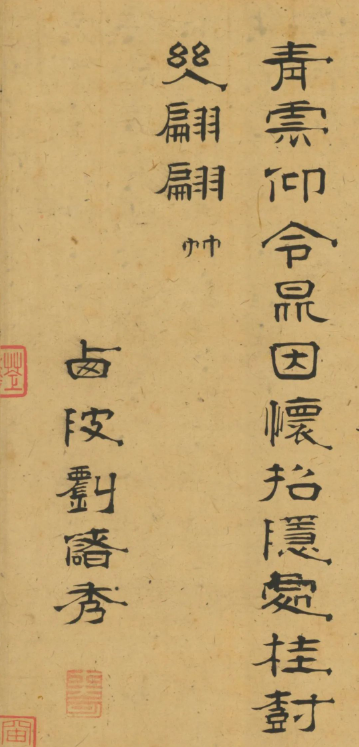 青雲仰令昆因懷招隱處桂尌
翩翩 艸
西陂劉儲秀